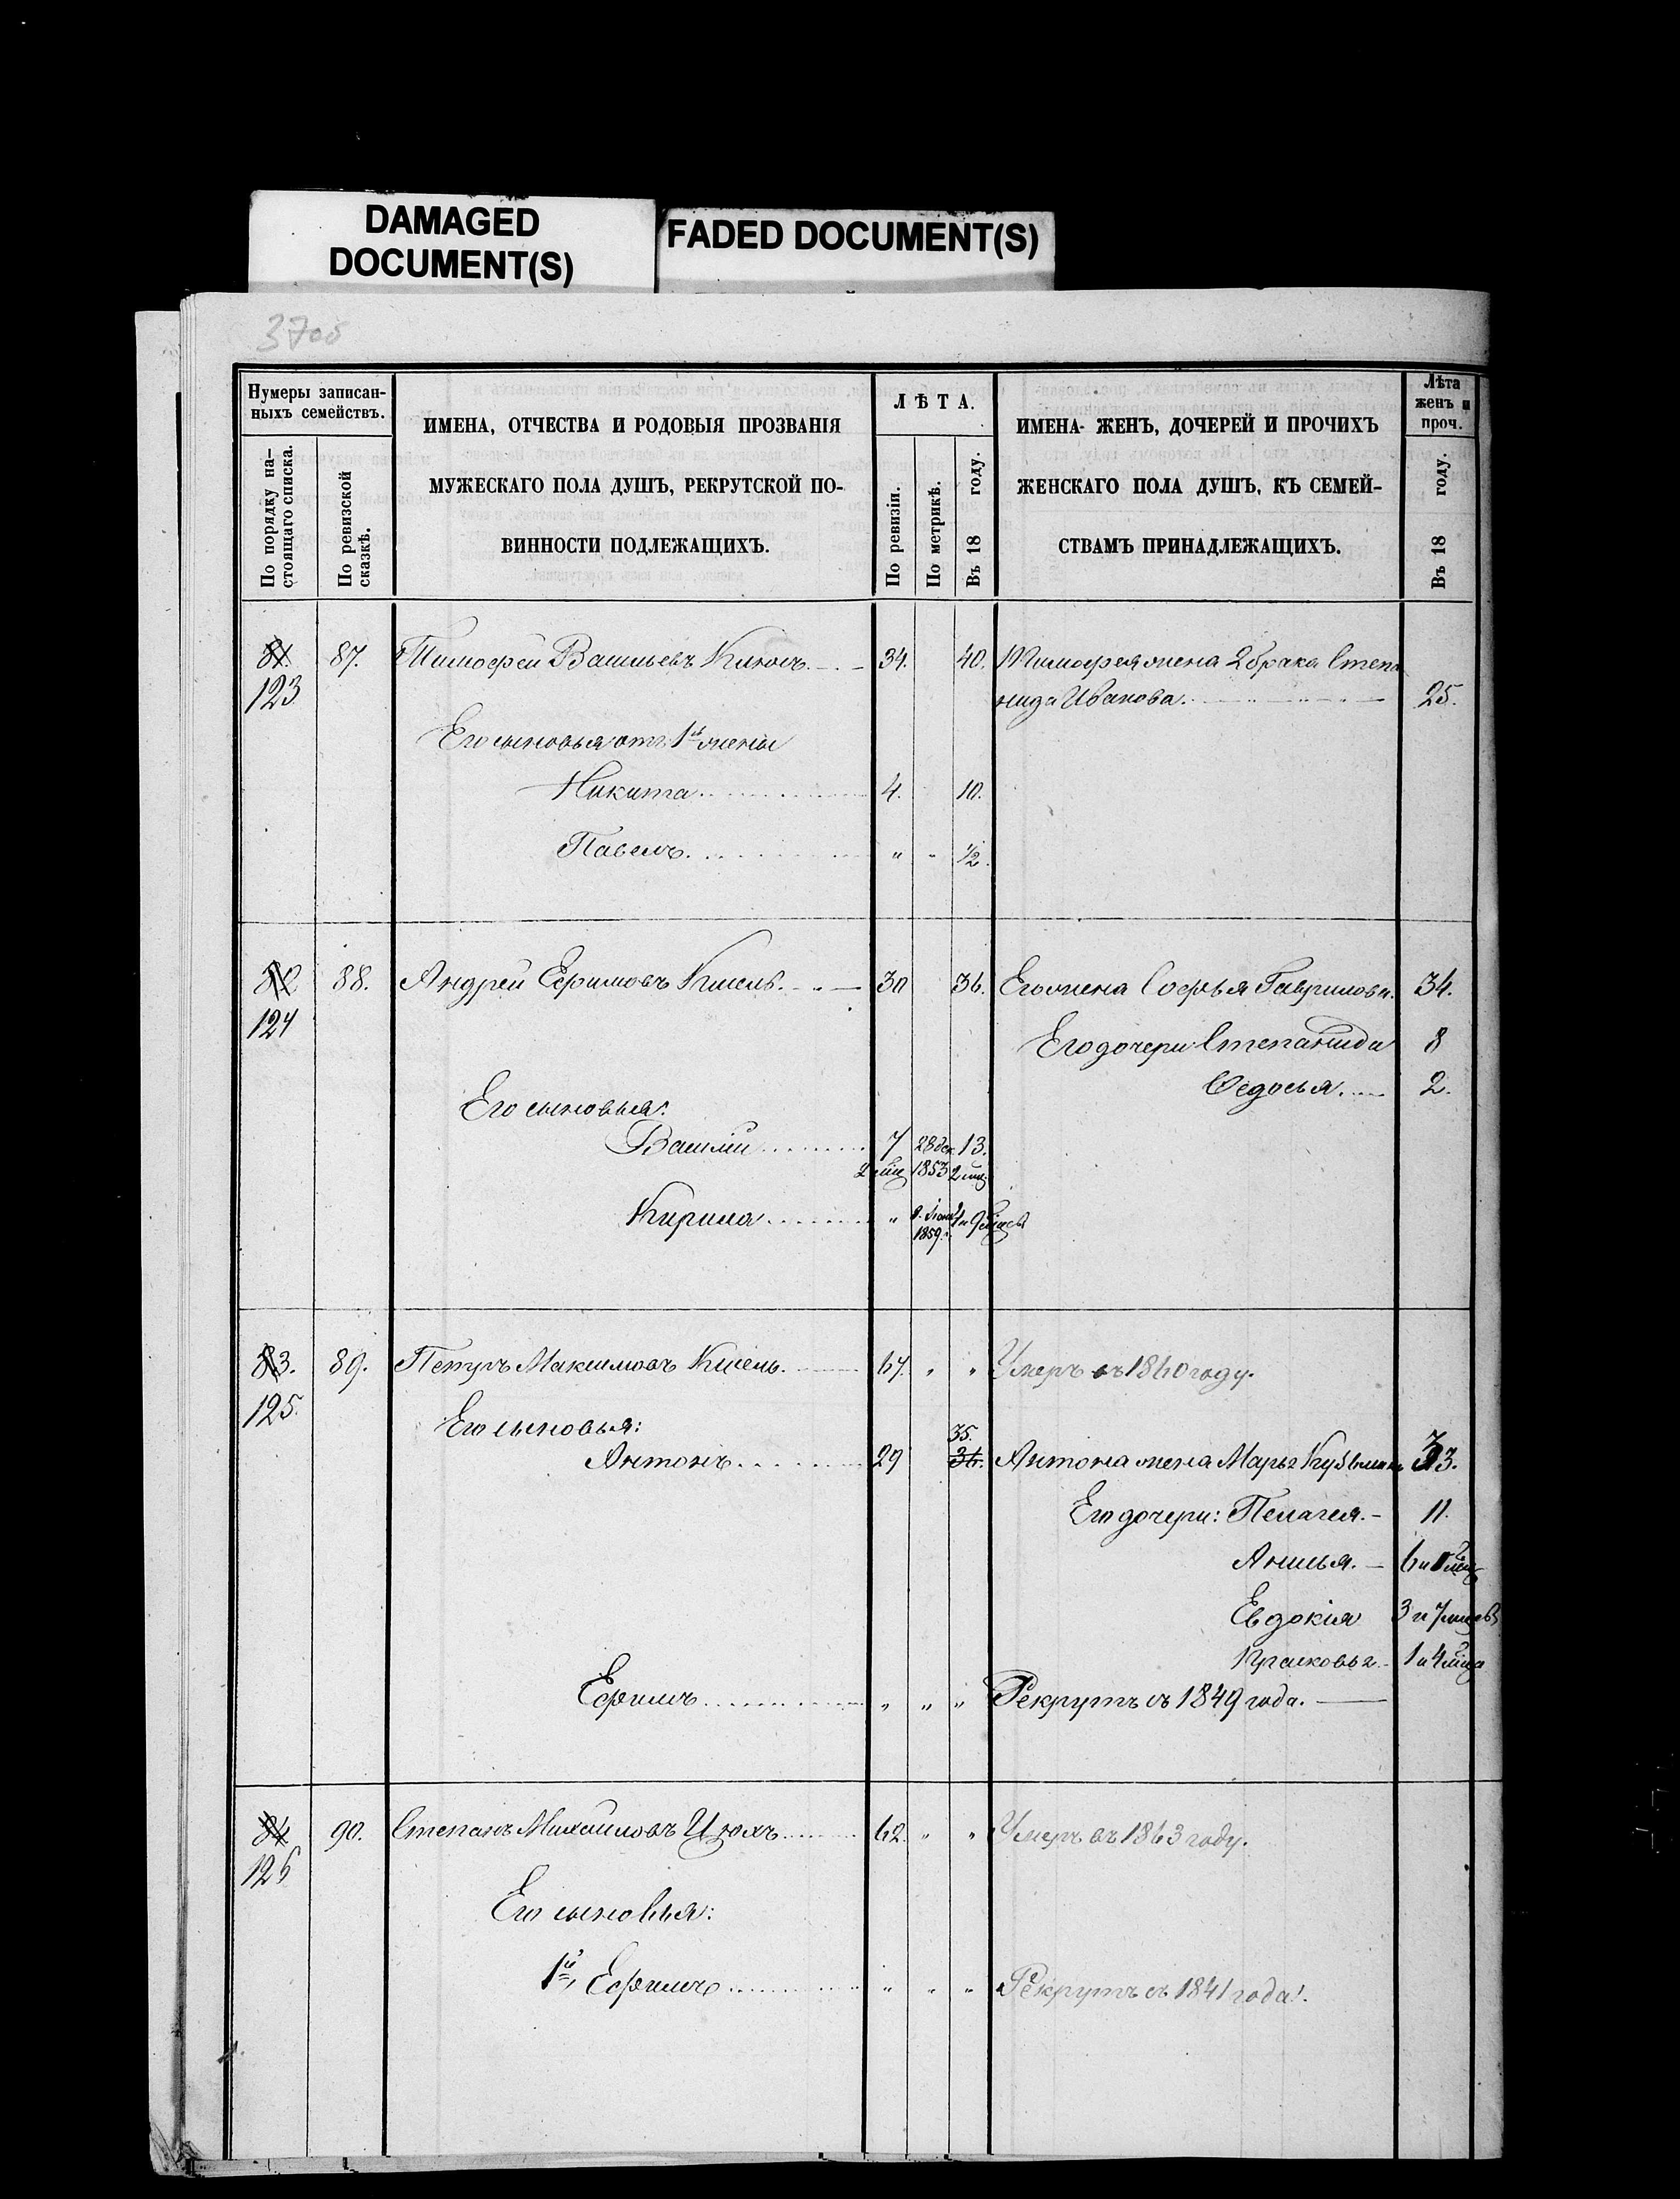 DAMAGED
DOCUMENT(S)
FADED DOCUMENT(S)
Нумеры записан-
ныхъ семействъ.
По порядку на-
стоящаго списка.
По ревизской
сказкѣ.
ИМЕНА, ОТЧЕСТВА И РОДОВЫЯ ПРОЗВАНІЯ
МУЖЕСКАГО ПОЛА ДУШЪ, РЕКРУТСКОЙ ПО-
ВИННОСТИ ПОДЛЕЖАЩИХЪ.
ЛѢТА.
По ревизіи.
По метрикѣ.
Въ 18 году.
ИМЕНА ЖЕНЪ, ДОЧЕРЕЙ И ПРОЧИХЪ
ЖЕНСКАГО ПОЛА ДУШЪ, КЪ СЕМЕЙ-
СТВАМЪ ПРИНАДЛЕЖАЩИХЪ.
Лѣта
женъ и
проч.
Въ 18 году.
81. 87. Тимофей Васильевъ 34. 40. Тимофея жена 2 брака Степа
123 нида Иванова. 25.
Его сыновья отъ 1й жены
Никита 4. 10.
Павелъ " " 1/2.
82 88. Андрей Ефимовъ Кисель. 30 36. Его жена Софья Гаврилова. 34.
124 Его дочери Степанида 8
Ѳедосья. 2.
Его сыновья:
Василій 7 28 дек 13.
2 мѣс 1853 2 мѣс
Кирила " 1859.
83. 89. Петръ Максимовъ Кисель. 67. " " Умеръ въ 1860 году.
125. Его сыновья: 35.
Антонъ 29 36. Антона жена Марья 33.
Его дочери: Пелагея. 11.
Анисья.
Евдокія 3 и 7 мѣсцевъ
Ефимъ " " " Рекрутъ съ 1849 года.
84 90. Степанъ Михайловъ 62. " " Умеръ въ 1863 году.
126
Его сыновья:
1й, Ефимъ " " " Рекрутъ съ 1841 года.